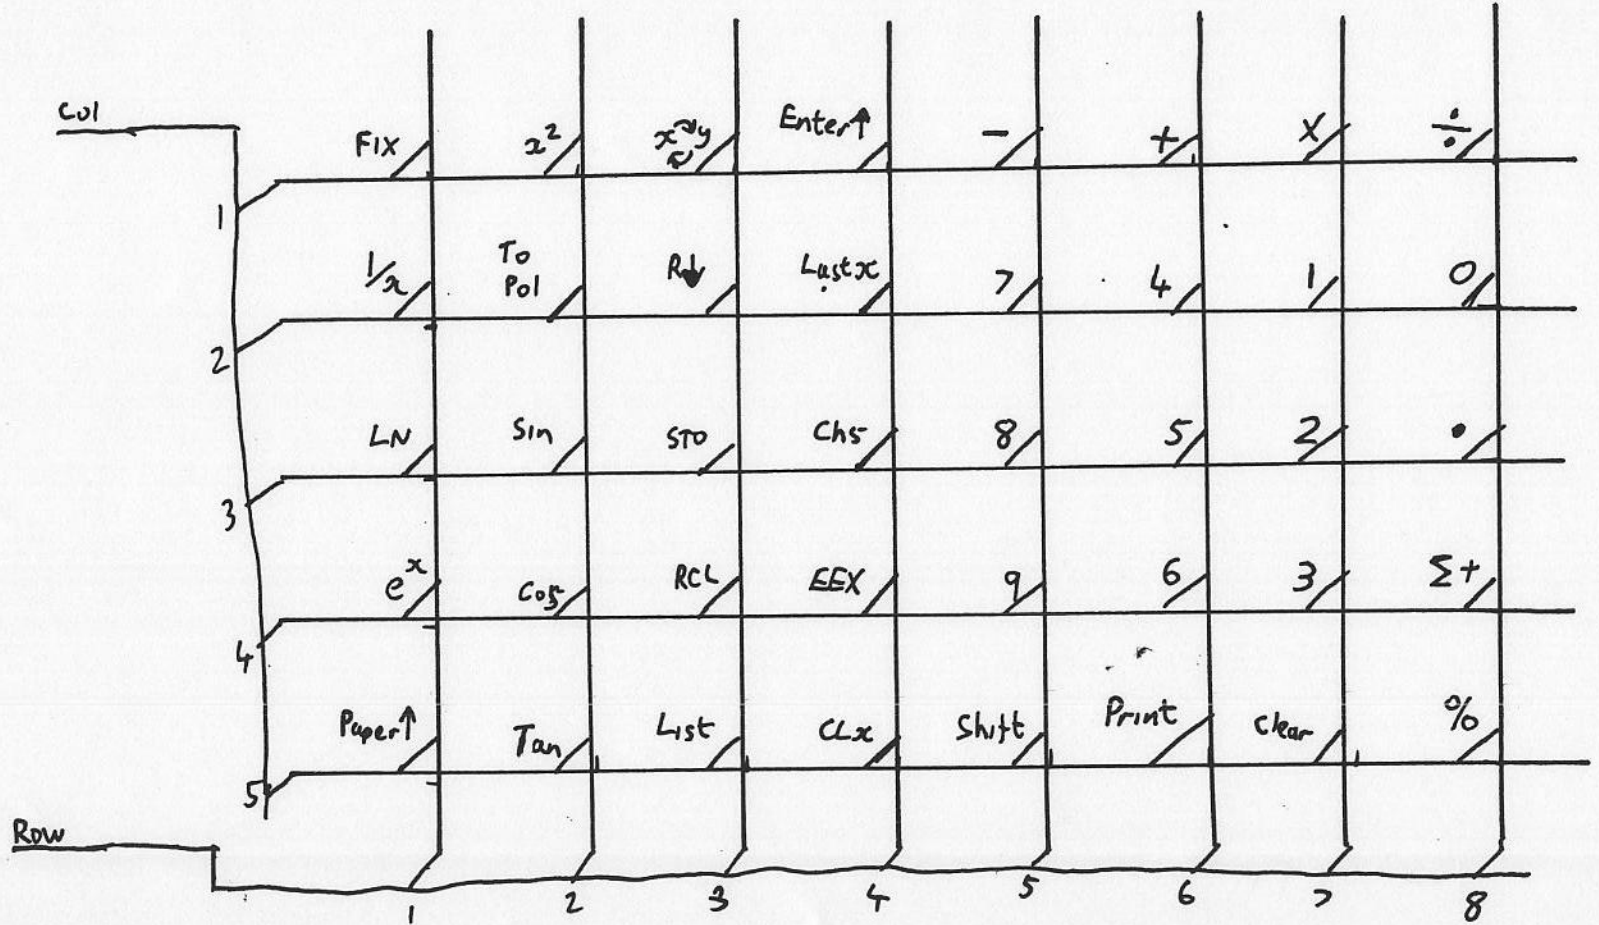 Col
FIX x² x⇄y Enter↑ - + X ÷
1
1/x To Pol R↓ Lastx 7 4 1 0
2
LN Sin STO Chs 8 5 2 •
3
e^x Cos RCL EEX 9 6 3 Σ+
4
Paper↑ Tan List CLx Shift Print Clear %
5
Row
1 2 3 4 5 6 7 8